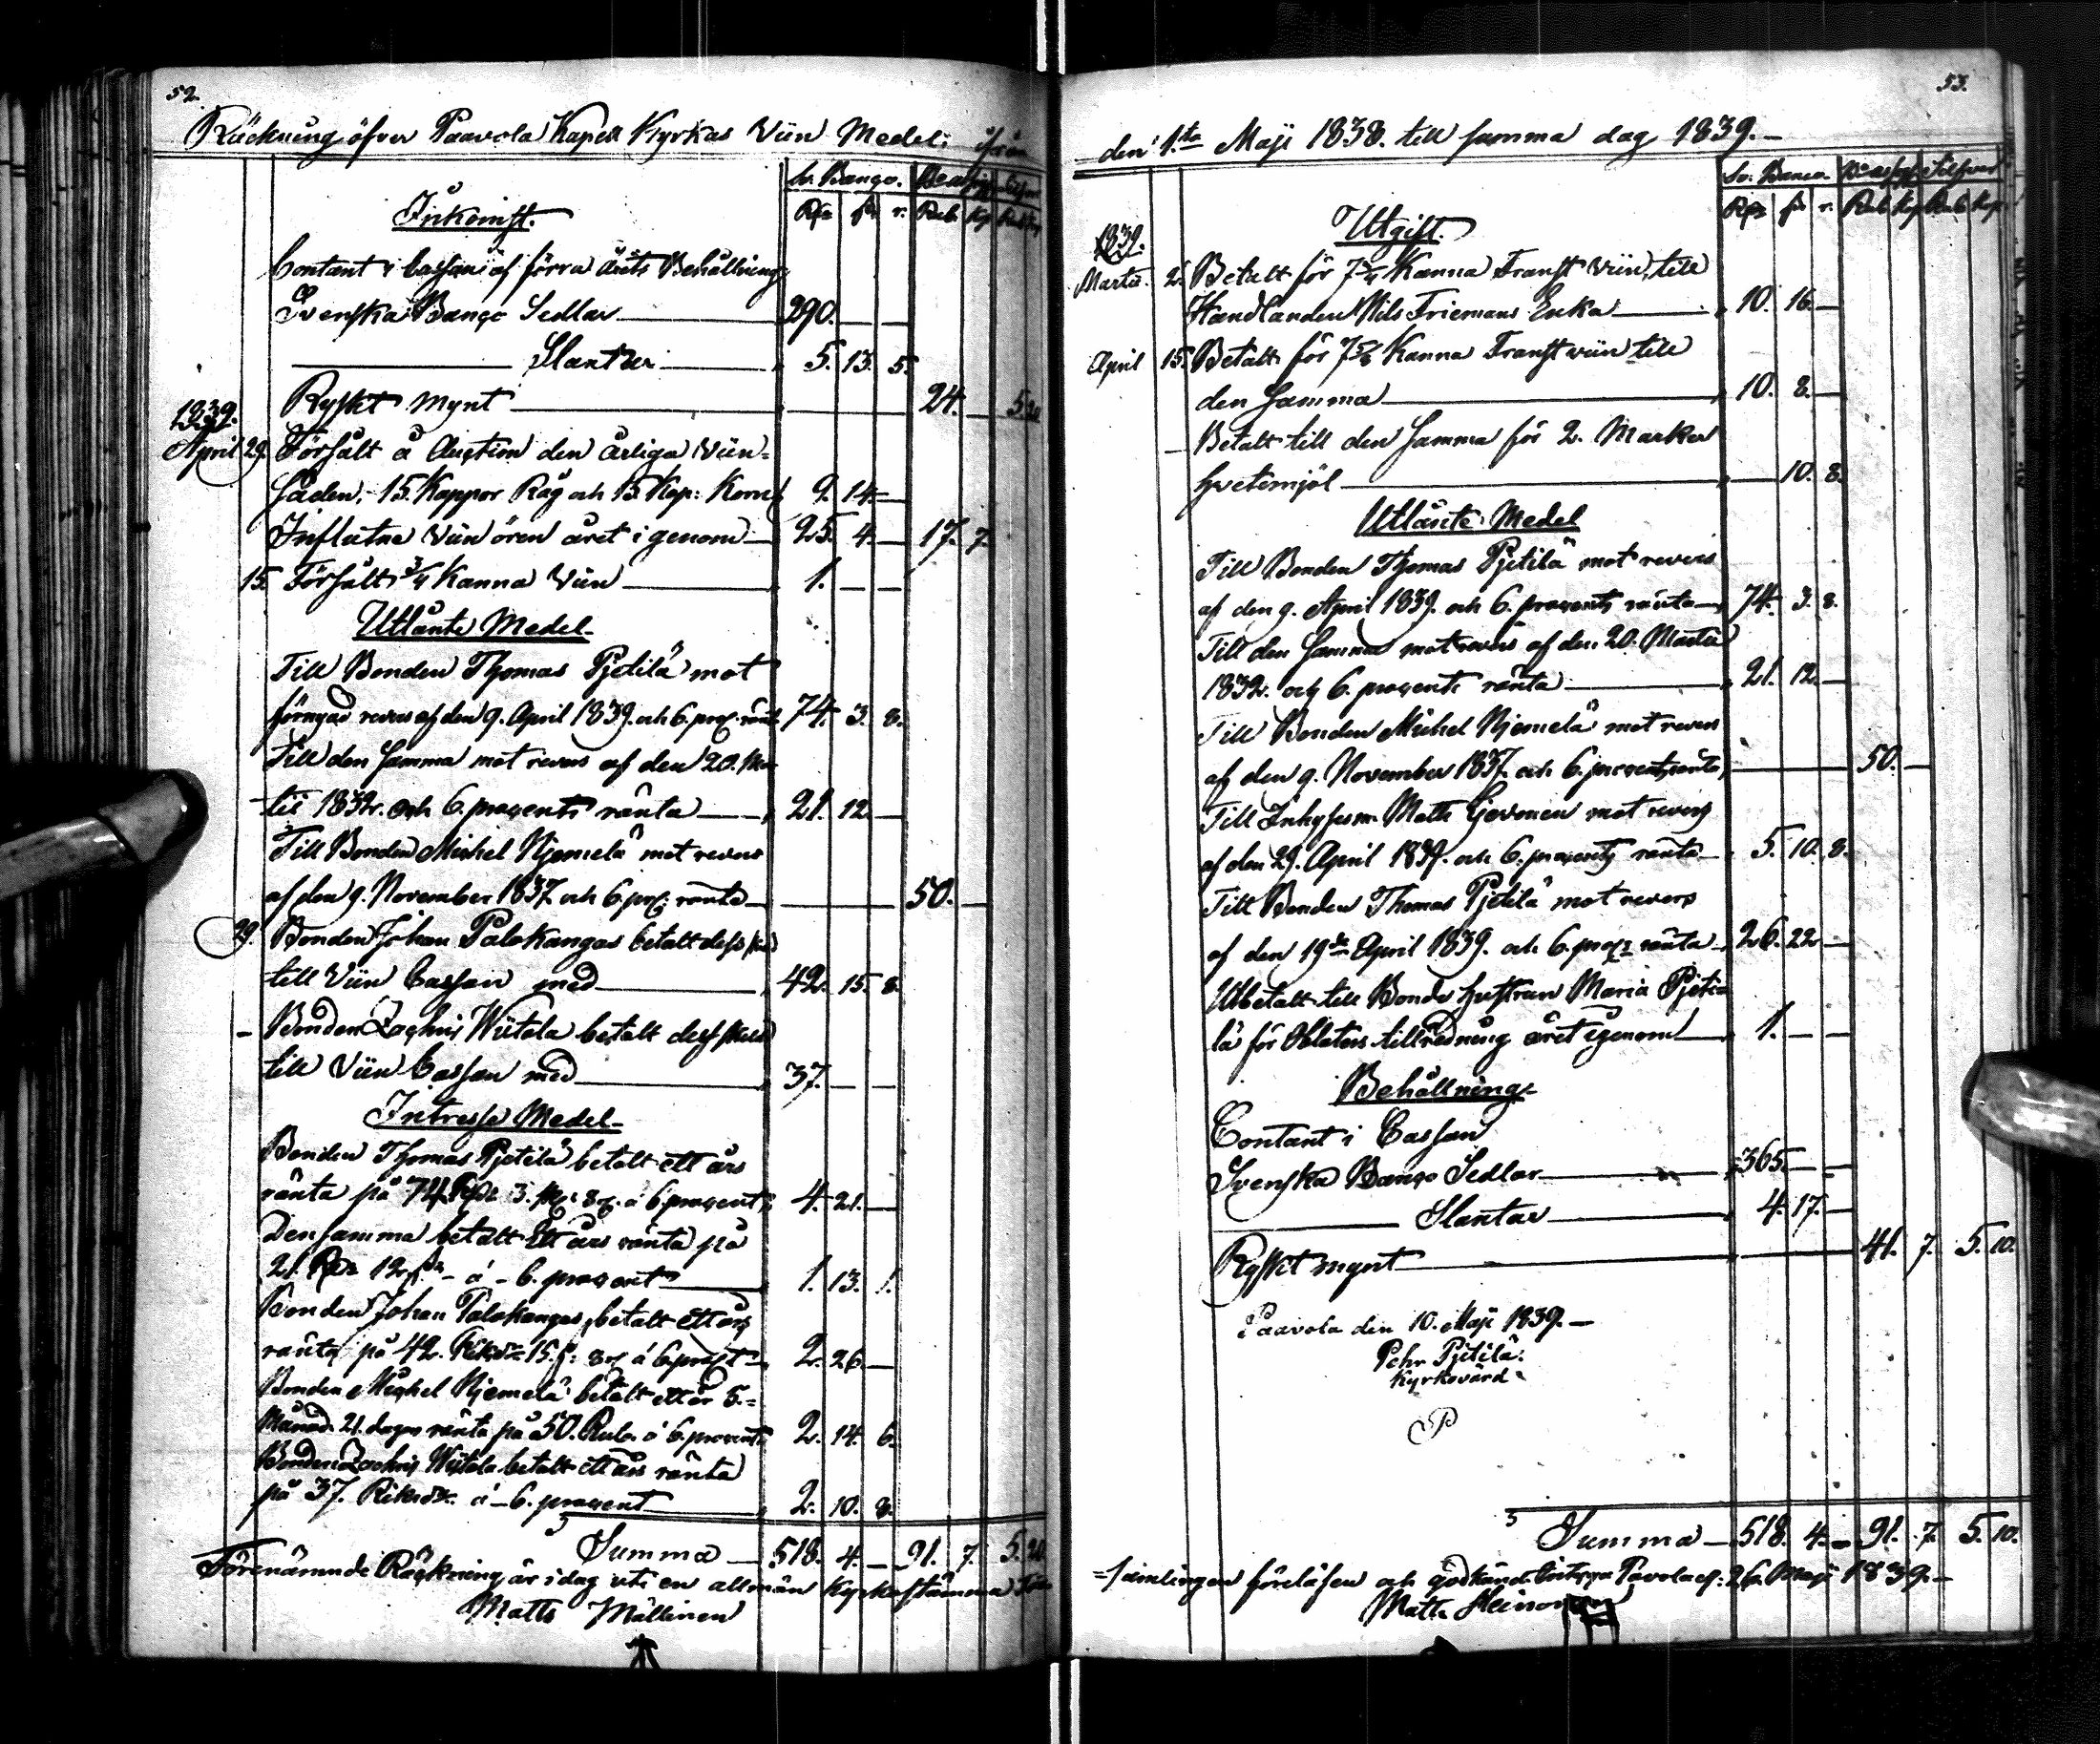 52.
Räckning öfver Paavola Kapell Kyrkas Viin Medel: ifrån
Sv. Banço. Bco assig. Silfver
Rdr sk r. Rub. Kp Rub Kp
Inkomst.
Contant i Cassan af förra årets Behållning
Svenska Banço Sedlar 290. — —
Slantar 5. 13. 5.
Ryskt Mynt 24. — 5.
1839.
April 29. Försålt å Auction den årliga Viin-
Säden, 15. Kappor Råg och 15. Kap: Korn 9. 14. —
Influtne Viin ören året igenom 25. 4. — 17. 7.
15. Försålt 3/4 Kanna Viin 1. — —
Utlånte Medel
Till Bonden Thomas Pjetilä mot
förnyad revers af den 9. April 1839. och 6. proç. ränt. 74. 3. 8.
Till den Samma mot revers af den 20. Mar-
tii 1832. och 6. proçents ränta 21. 12. —
Till Bonden Michel Njemelä mot revers
af den 9. November 1837. och 6. proç: ränta 50. —
29. Bonden Johan Palokangas betalt dess
till Viin Cassan med 42. 15. 8.
— Bonden Zachris Wiitala betalt dess skuld
till Viin Cassan med 37. — —
Intresse Medel
Bonden Thomas Pjetilä betalt ett års
ränta på 74. Rdr 3. sk: 8 r. à 6 proçent 4. 21. —
Den samma betalt Ett års ränta på
21. Rdr 12. sk — à — 6. proçent 1. 13. 1.
Bonden Johan Palokangas, betalt ett års
ränta på 42. Riksdr 15. s: 8 r. à 6 proçt 2. 26. —
Bonden Michel Njemelä betalt ett år 5.
Månad. 21. dagars ränta på 50. Rub. à 6. proçent 2. 14. 6.
Bonden Zachris Wiitala betalt ett års ränta
på 37. Riksdr. à — 6. proçent 2. 10. 8.
Summa 518. 4. — 91. 7. 5.
Förenämnde Räckning är i dag uti en allmän Kyrkostämma
Matts Mällinen
53.
den 1.sta Maji 1838. till samma dag 1839.
Sv. Banco. Bco assig. Silfver
Rdr sk r. Rub Kop Rub. Kop
Utgift.
1839.
Martii 2. Betalt för 7 3/4 Kanna Franst Viin, till
Handlanden Nils Friemans Enka 10. 16. —
April 15. Betalt för 7 5/8 Kanna Franst viin till
den Samma 10. 8. —
— Betalt till den Samma för 2. Marker
hvetemjöl — 10. 8.
Utlånte Medel
Till Bonden Thomas Pjetilä mot revers
af den 9. April 1839. och 6. proçents ränta 74. 3. 8.
Till den Samma mot revers af den 20. Martii
1832. och 6. proçents ränta 21. 12. —
Till Bonden Michel Njemelä mot revers
af den 9. November 1837. och 6. proçents ränta 50. —
Till Inhyses m. Matts mot revers
af den 29. April 1839. och 6. proçents ränta 5. 10. 8.
Till Bonden Thomas Pjetilä mot revers
af den 19de April 1839. och 6. proçt ränta 26. 22. —
Utbetalt till Bonde hustrun Maria Pjeti-
lä för Oblaters tillredning året igenom 1. — —
Behållning
Contant i Cassan
Svenska Banço Sedlar 365. — —
Slantar 4. 17. —
Ryskt mynt 41. 7. 5. 10.
Paavola den 10. Maji 1839. —
Pehr Pjetilä.
Kyrkovärd
P
Summa 518. 4. — 91. 7. 5. 10.
samlingen föreläsen och godkänd Paavola d: 26. Maji 1839. —
Matts Heinonen